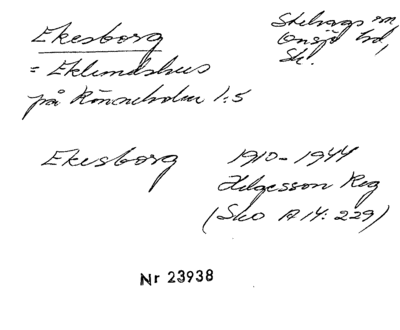 Ekesborg
Stehags sn,
Onsjö hd,
Sk.
= Eklundshus
på Rönneholm 1:5
Ekesborg 1910-1944
Helgesson Reg
(Sko A 14: 229)
Nr 23938